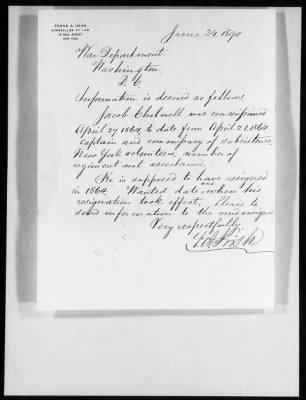 FRANK A. IRISH,
COUNSELLOR AT LAW,
NEW YORK.
June 24, 1890
War Department
Washington
D. C.
Information is desired as follows.
Jacob Chatwell was commissioned
April 27 1864, to date from April 21, 1864
captain and commissary of subsistence,
New York volunteers, number of
regiment not ascertained.
He is supposed to have resigned
in 1864. Wanted date, when his
resignation took effect. Please to
send information to the undersigned
Very respectfully,
F. A. Irish